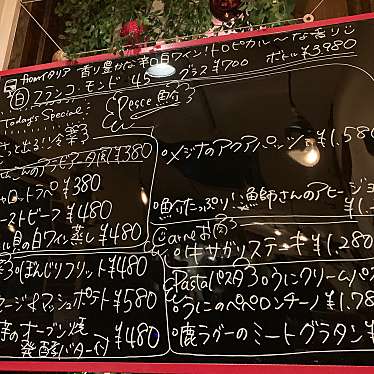 fromイタリア 香り豊かな辛口白ワイン!トロピカル〜な香り
白 フランコ・モンド 45 グラス¥700 ボトル¥3980
Today's Special:
Pesce 魚介
さっと出る!冷菜
¥380
メジナのアクアパッツァ¥1,580
キャロットラペ ¥380
ローストビーフ ¥480
魚介たっぷり!漁師さんのアヒージョ
貝の白ワイン蒸し ¥480
Carne お肉
牛サガリステーキ¥1,280
ぼんじりフリット¥480
Pasta パスタ
うにクリームパス
ソーセージ&マッシュポテト ¥580
うにのペペロンチーノ¥1,78
のオーブン焼 発酵バター付 ¥480
鹿ラグーのミートグラタン¥